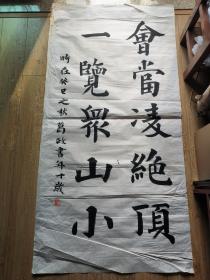 會當凌絶頂
一覽衆山小
時在癸巳之秋葛政書年十歲